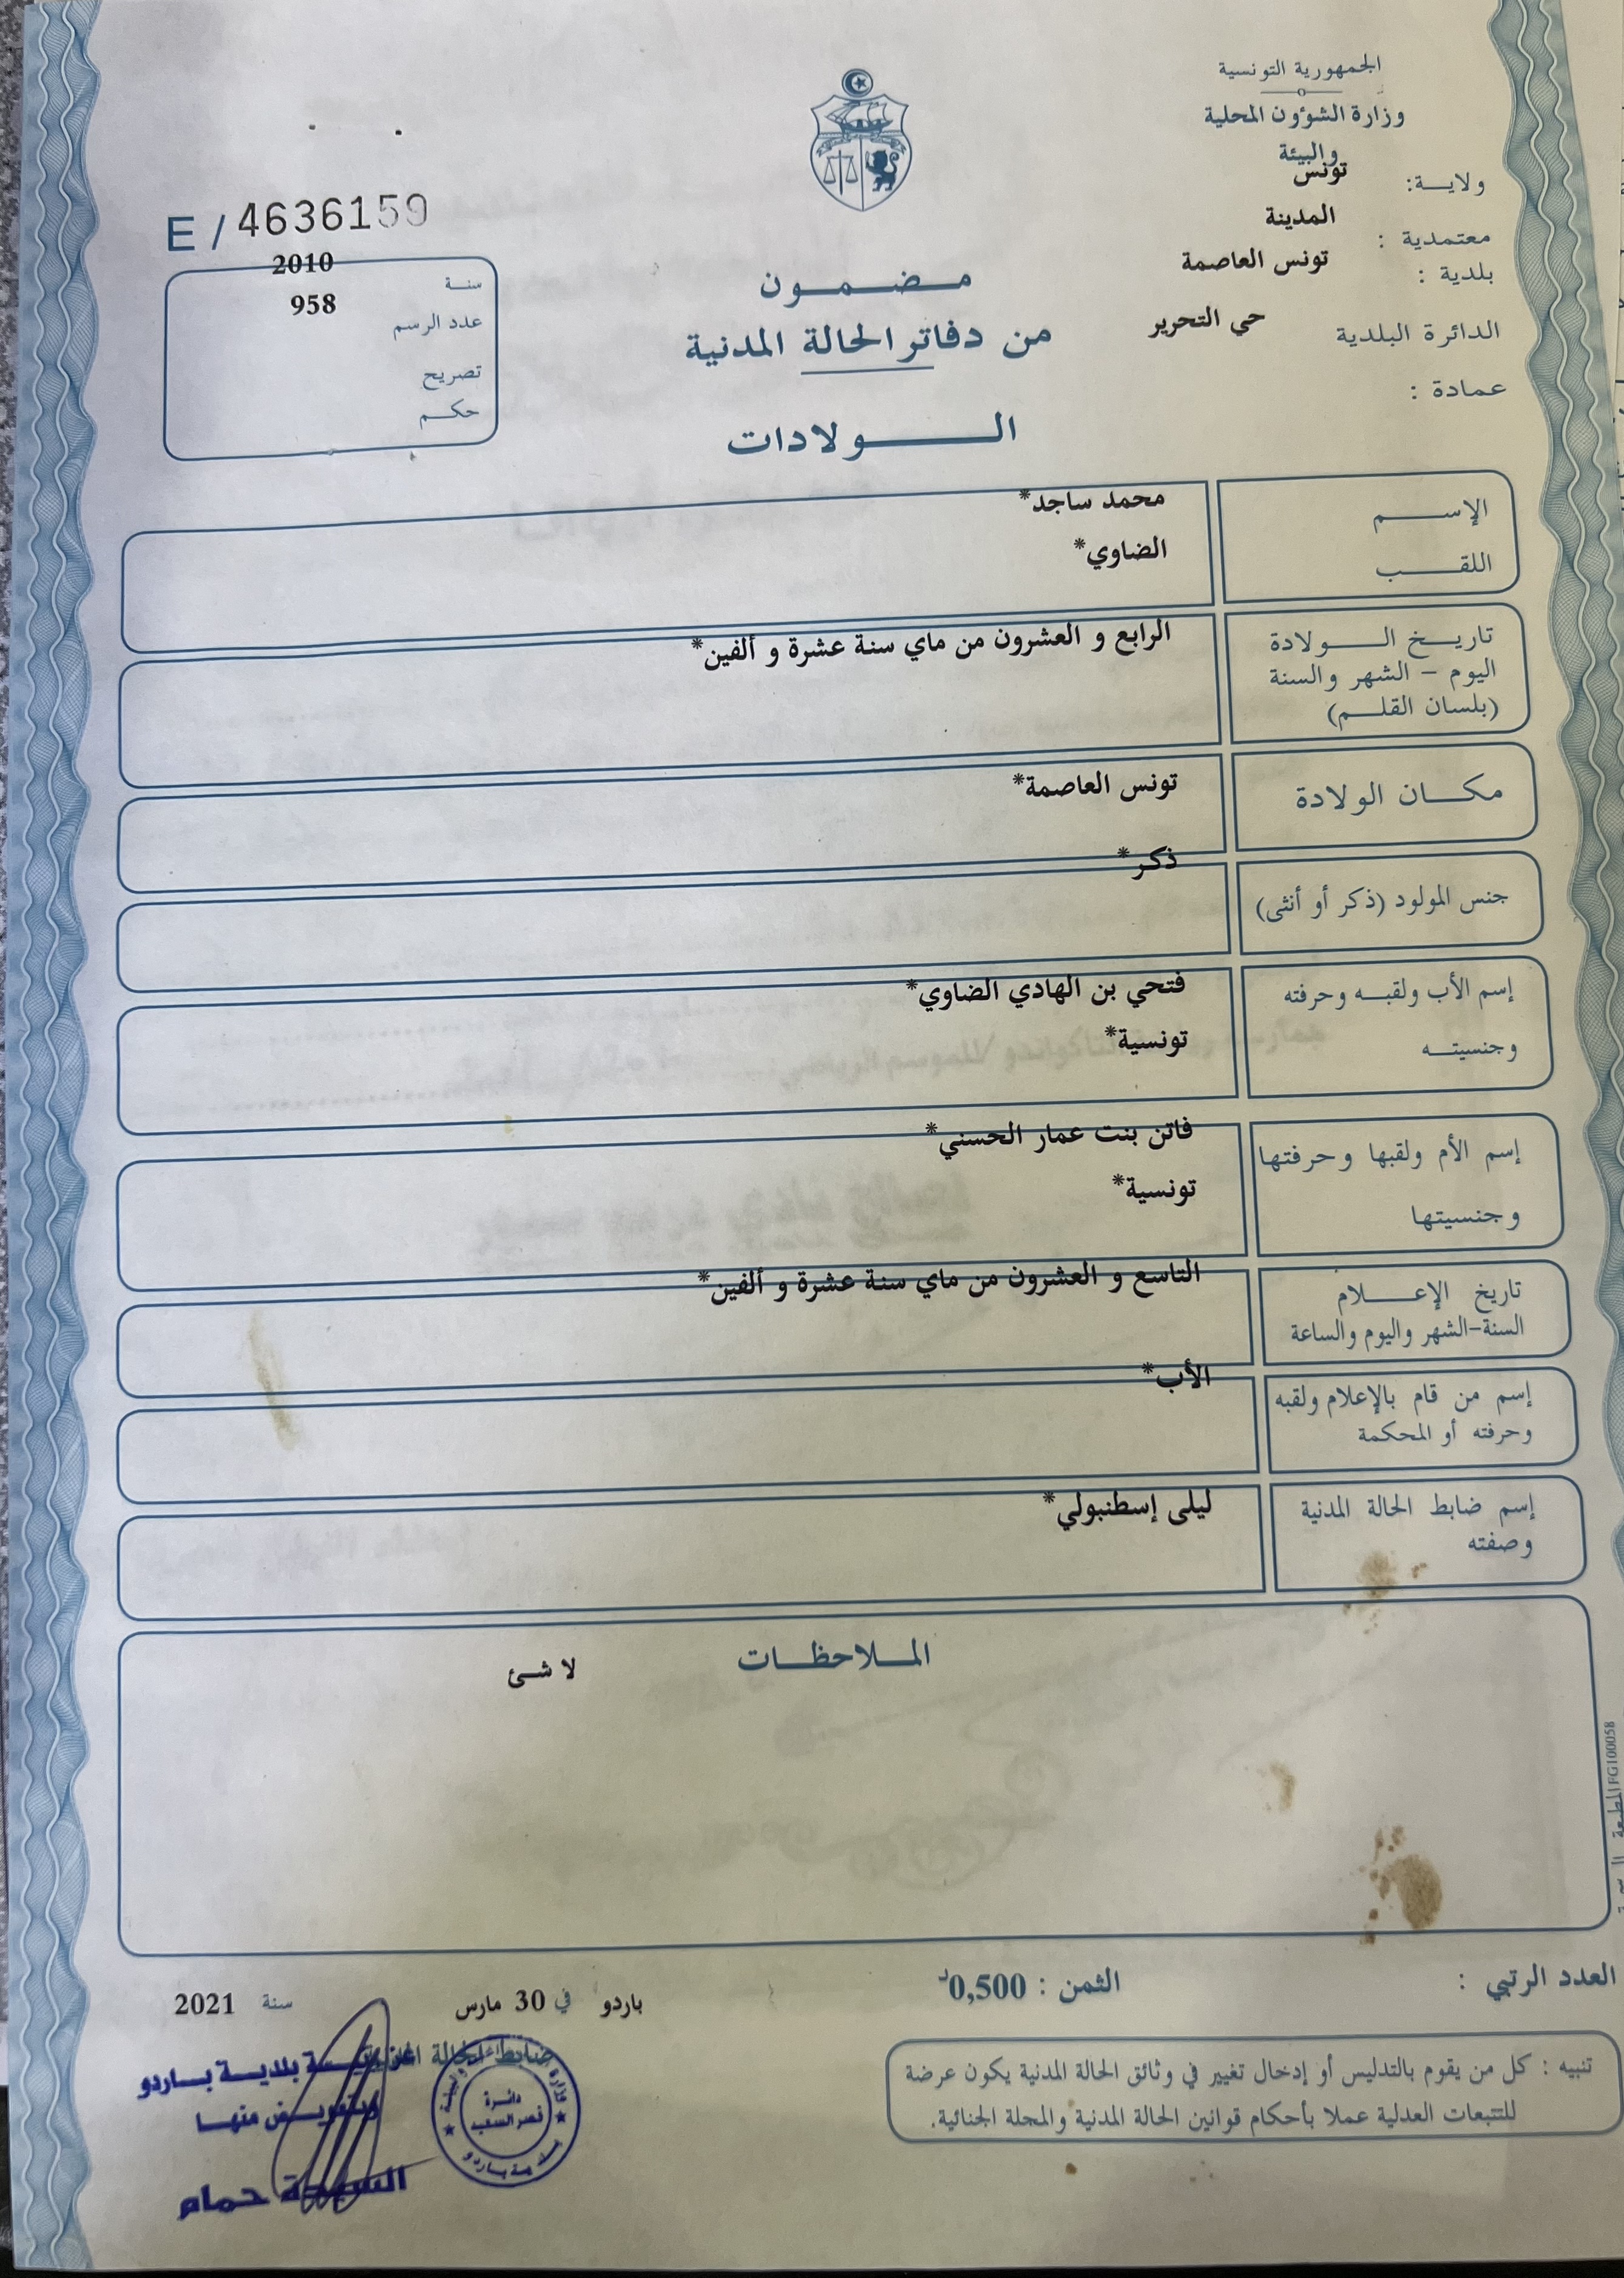 الجمهورية التونسية
وزارة الشؤون المحلية
والبيئة
ولاية: تونس
معتمدية : المدينة
بلدية : تونس العاصمة
الدائرة البلدية حي التحرير
عمادة :
E / 4636159
سنة 2010
عدد الرسم 958
تصريح
حكم
مضمون
من دفاتر الحالة المدنية
الولادات
الإسم محمد ساجد*
اللقب الضاوي*
تاريخ الولادة الرابع و العشرون من ماي سنة عشرة و ألفين*
اليوم - الشهر والسنة
(بلسان القلم)
مكان الولادة تونس العاصمة*
جنس المولود (ذكر أو أنثى) ذكر*
إسم الأب ولقبه وحرفته فتحي بن الهادي الضاوي*
وجنسيته تونسية*
إسم الأم ولقبها وحرفتها فاتن بنت عمار الحسني*
وجنسيتها تونسية*
تاريخ الإعلام التاسع و العشرون من ماي سنة عشرة و ألفين*
السنة-الشهر واليوم والساعة
إسم من قام بالإعلام ولقبه الأب*
وحرفته أو المحكمة
إسم ضابط الحالة المدنية ليلى إسطنبولي*
وصفته
الملاحظات
لا شئ
العدد الرتبي :
الثمن : 0,500د
باردو في 30 مارس سنة 2021
ضابط الحالة
بلدية باردو
منها
السيدة حمام
دائرة
قصر السعيد
تنبيه : كل من يقوم بالتدليس أو إدخال تغيير في وثائق الحالة المدنية يكون عرضة
للتتبعات العدلية عملا بأحكام قوانين الحالة المدنية والمجلة الجنائية.
FG100058